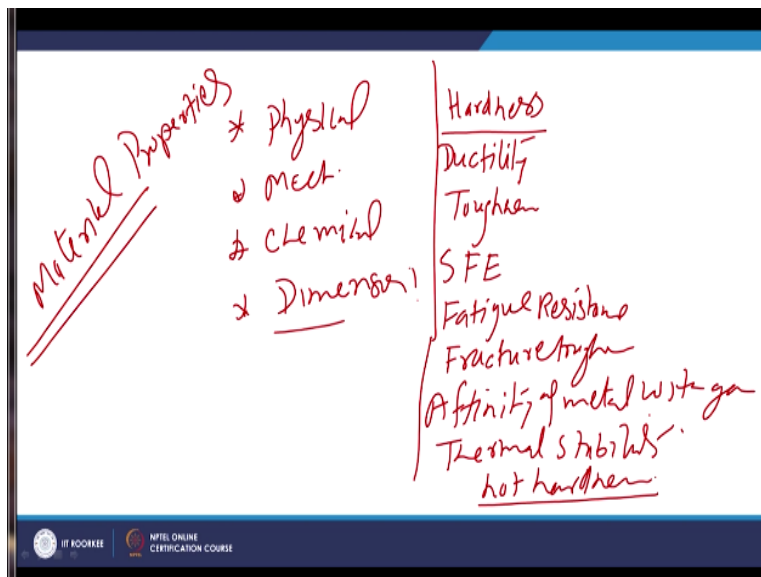 Material Properties
* Physical
* Mech.
* Chemical
* Dimension
Hardness
Ductility
Toughness
SFE
Fatigue Resistance
Fracture tough
Affinity of metal with gas
Thermal stability
hot hardness
IIT ROORKEE
NPTEL ONLINE
CERTIFICATION COURSE